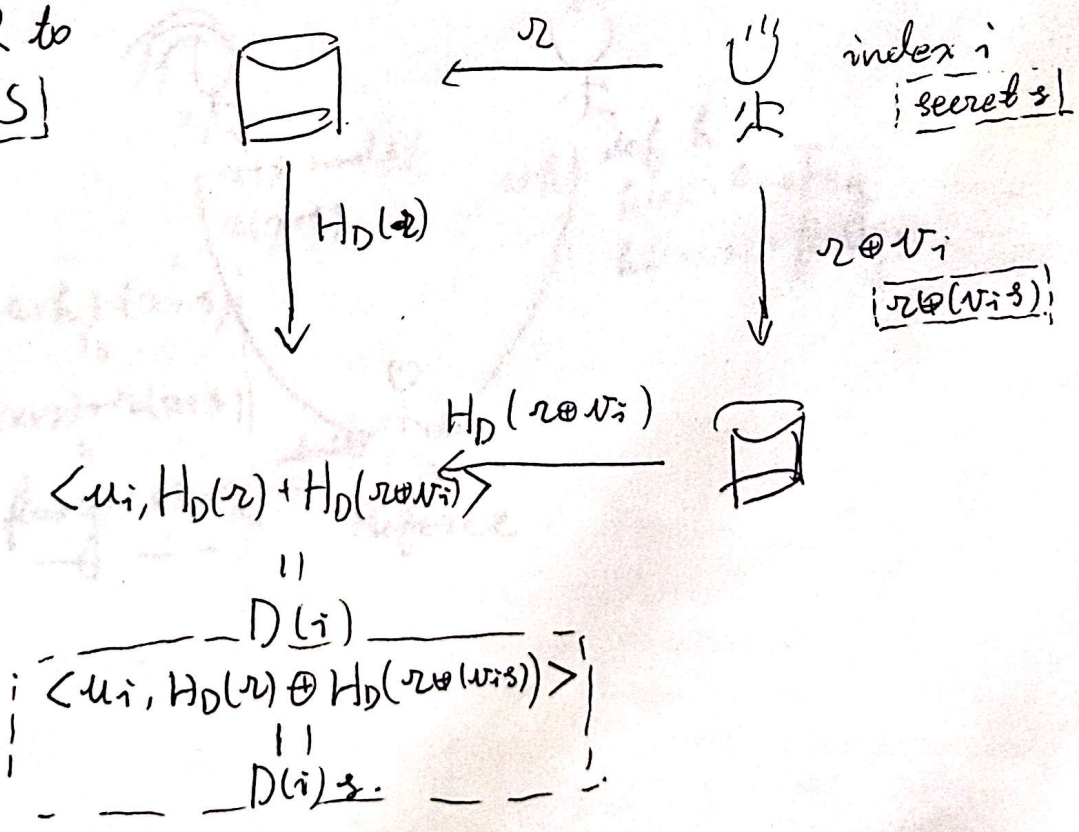 to
S]
r
index i
secret s
H_D(r)
r⊕v_i
r⊕(v_i s)
H_D(r⊕v_i)
<u_i, H_D(r) + H_D(r⊕v_i)>
=
D(i)
<u_i, H_D(r) ⊕ H_D(r⊕(v_i s))>
=
D(i) s.